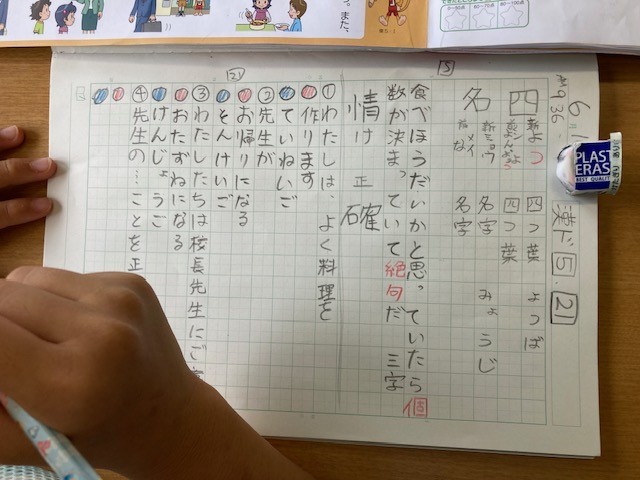 漢ド 5. 21
四 四つ葉 よつば
四つ葉
名 名字 みょうじ
名字
5
食べほうだいかと思っていたら個
数が決まっていて絶句だ 三字
情け 正確
21
①わたしは、よく料理を
作ります
ていねいご
②先生が
お帰りになる
そんけいご
③わたしたちは校長先生にご
おたずねになる
けんじょうご
④先生の…ことを正
PLAST
ERAS
BEST QUALITY